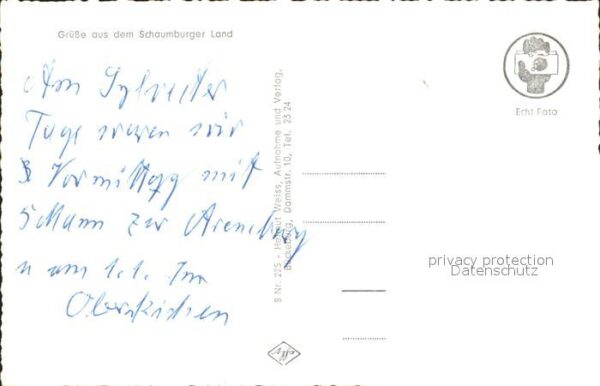 Grüße aus dem Schaumburger Land
Am Sylvester
Tage waren wir
Vormittag mit
5 Mann zur Arensburg
u am 1.1. Im
Obernkirchen
S Nr. 225 - Helmut Weiss, Aufnahme und Verlag,
Bückeburg, Dammstr. 10, Tel. 23 24
Echt Foto
privacy protection
Datenschutz